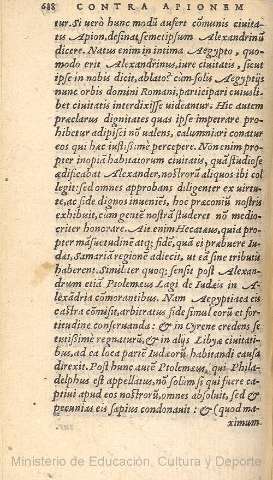 688 CONTRA APIONEM
tur. Si uerò hunc modũ aufert cõmunis ciuita
tis Apion, desinat semetipsum Alexandrinũ
dicere. Natus enim in intima Aegypto, quo-
modo erit Alexandrinus, iure ciuitatis, sicut
ipse in nobis dicit, ablato? cùm solis Aegyptijs
nunc orbis domini Romani, participari cuiusli
bet ciuitatis interdixisse uideantur. Hic autem
præclarus dignitates quas ipse impetrare pro-
hibetur adipisci nõ ualens, calumniari conatur
eos qui hæc iustissimè percepere. Non enim pro
pter inopiã habitatorum ciuitatis, quã studiose
ædificabat Alexander, nostrorũ aliquos ibi col
legit: sed omnes approbans diligenter ex uirtu-
te, ac fide dignos inueniẽs, hoc præconiũ nostris
exhibuit, cum gentẽ nostrã studeret nõ medio-
criter honorare. Ait enim Hecatæus, quia pro-
pter mãsuetudinẽ atq; fidẽ, quã ei præbuere Iu-
dæi, Samariã regionẽ adiecit, ut eã sine tributis
haberent. Similiter quoq; sensit post Alexan-
drum etiã Ptolemæus Lagi de Iudæis in A-
lexãdria cõmorantibus. Nam Aegyptiaca eis
castra cõmisit, arbitratus fide simul eorũ et for-
titudine conseruanda: & in Cyrene credens se
certissimè regnaturũ, & in alijs Libyæ ciuitati-
bus, ad ea loca partẽ Iudæorũ, habitandi causa
direxit. Post hunc autẽ Ptolemæus, qui Phila-
delphus est appellatus, nõ solùm si qui fuere ca-
ptiui apud eos nostrorũ, omnes absoluit, sed &
pecunias eis sæpius condonauit: & (quod ma-
ximum
Ministerio de Educación, Cultura y Deporte